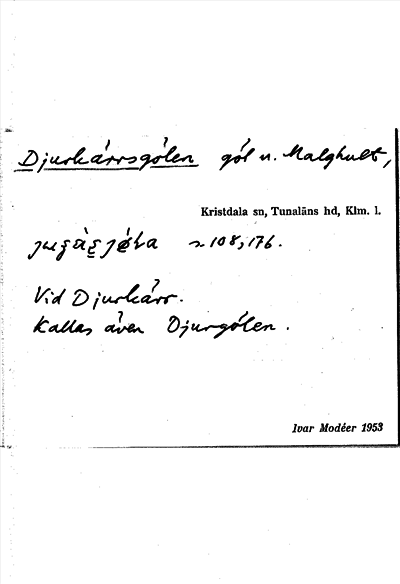 Djurkärrsgölen göl n. Malghult,
Kristdala sn, Tunaläns hd, Klm. l.
s. 108, 176.
Vid Djurkärr.
Kallas även Djurgölen.
Ivar Modéer 1953